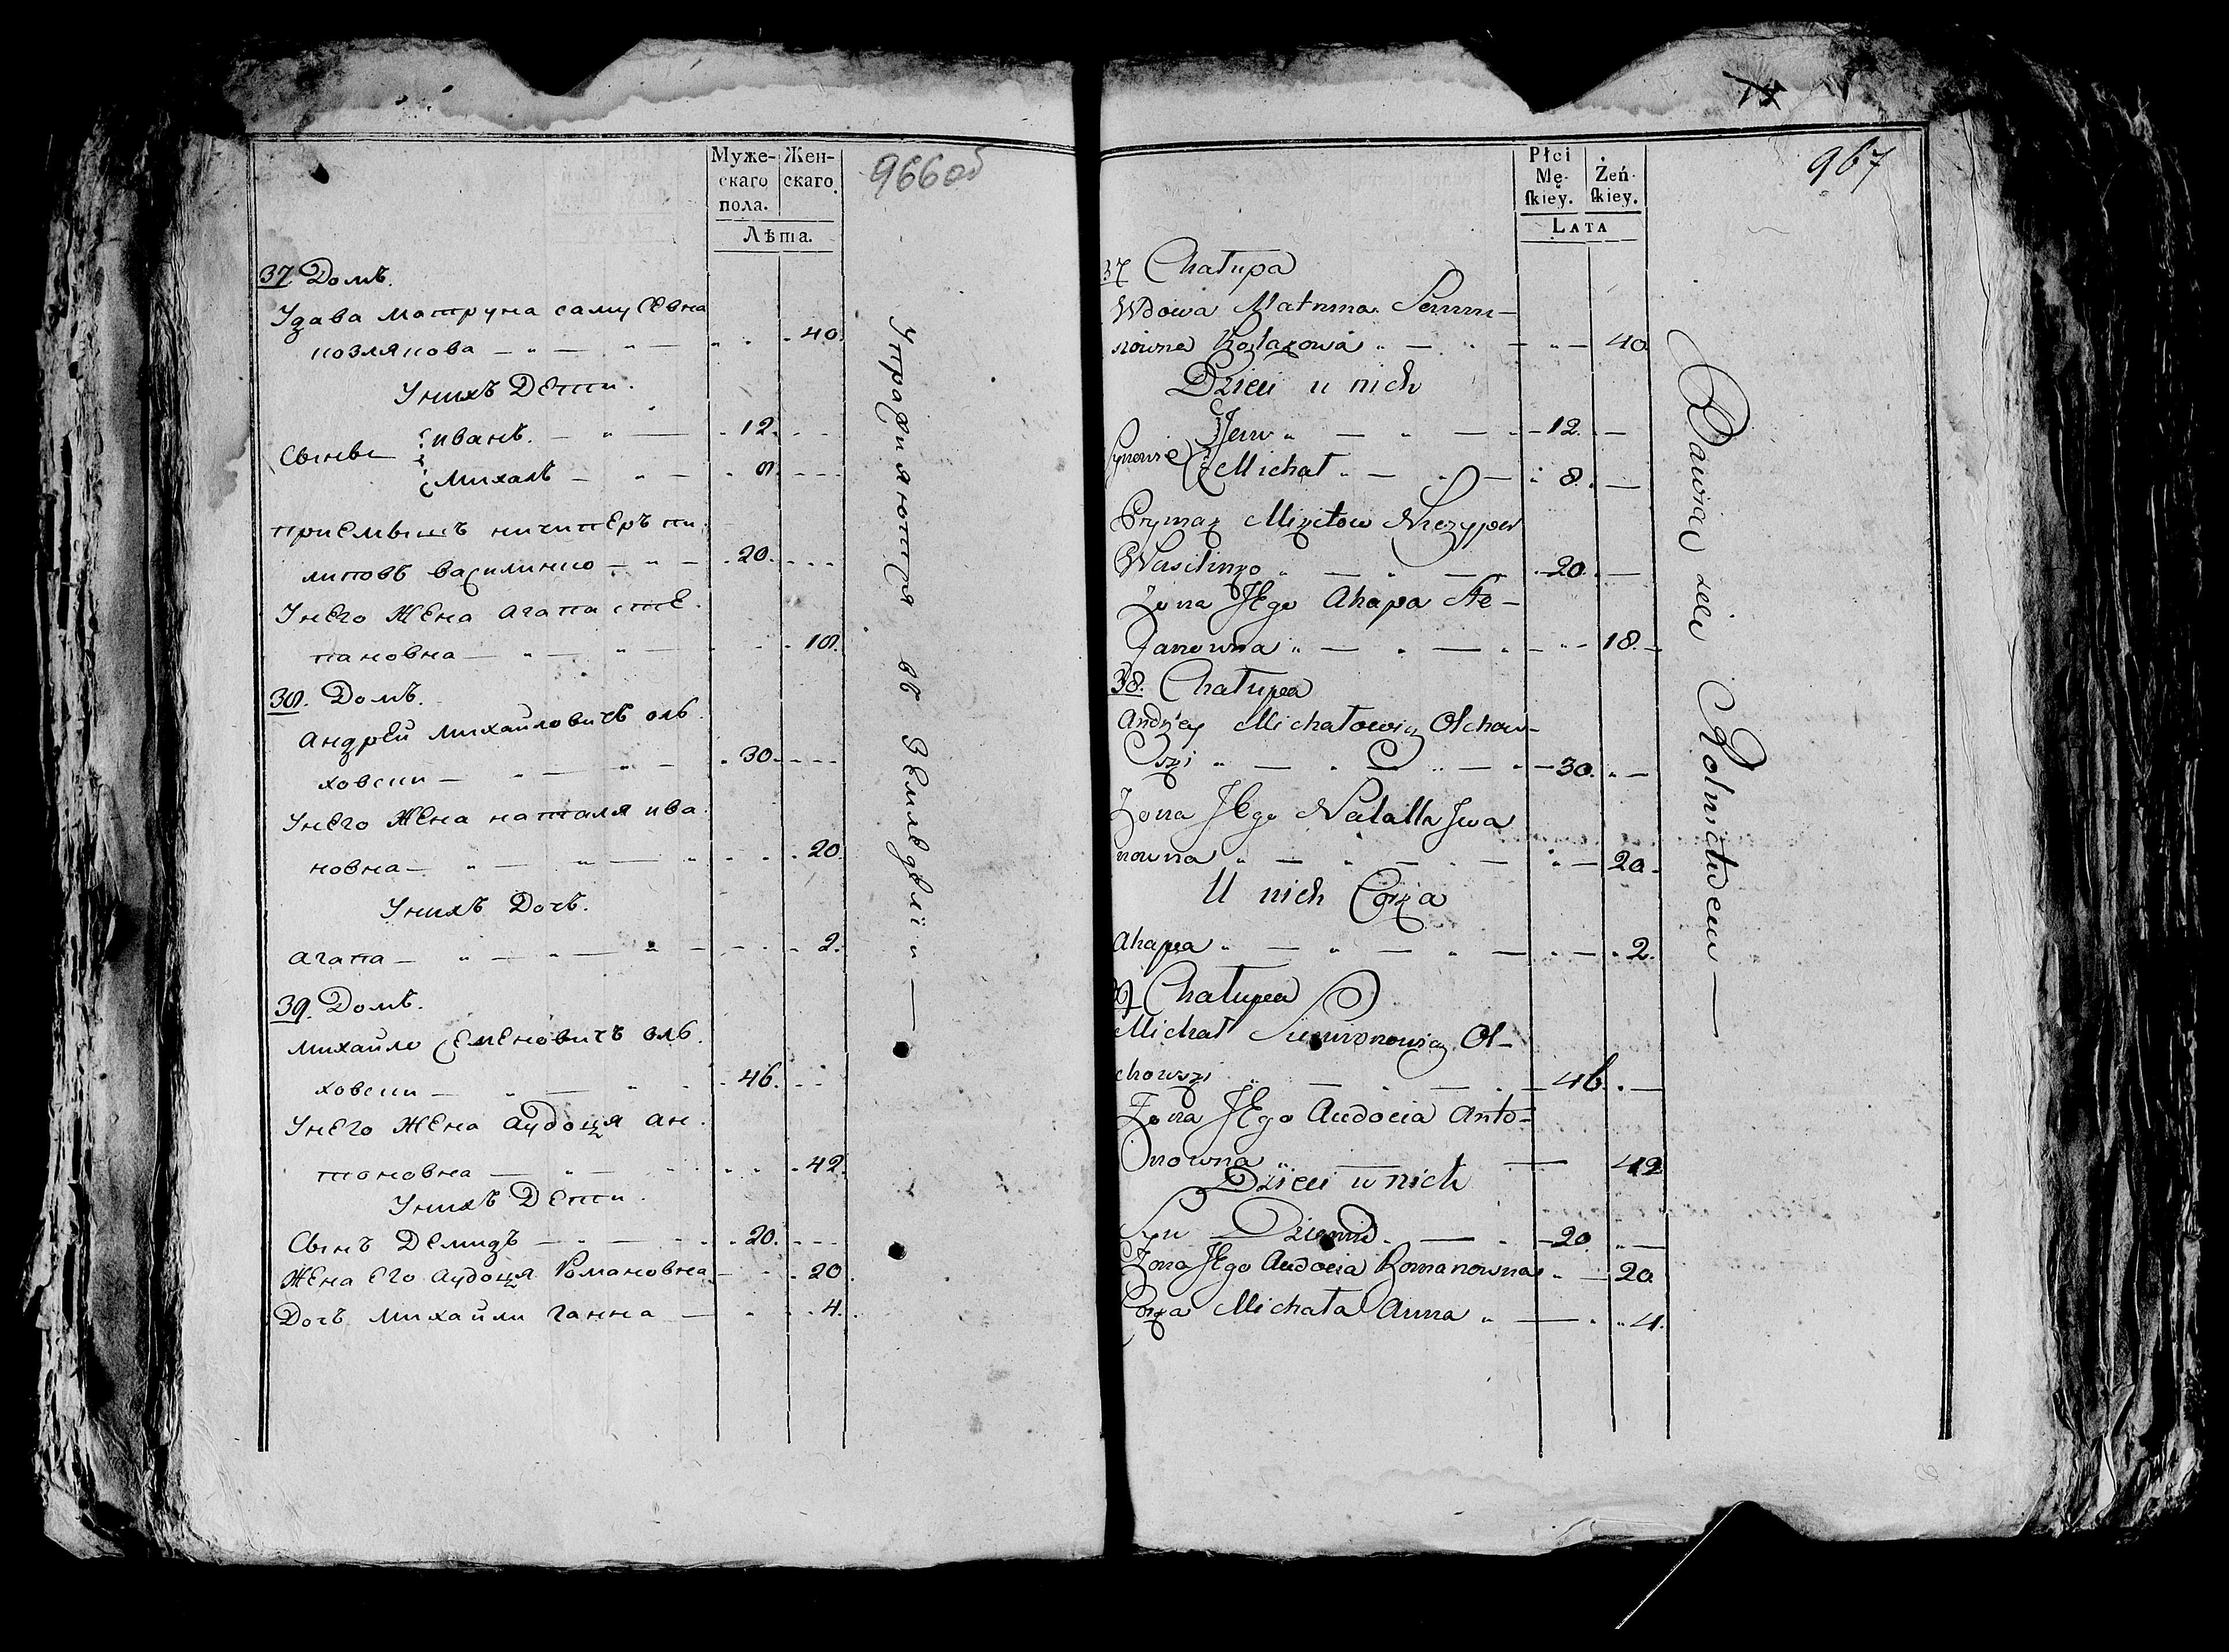 Муже-
скаго
пола.
Жен-
скаго.
Лѣта.
966об
37 Домъ.
Удава Матруна самусевна
козлякова — 40.
Унихъ Дети.
Сынве Иванъ. — 12.
Михалъ — 8.
приемышъ ничиперъ пи-
липовъ василинко — 20.
Унего Жена Агапа сте-
пановна — 18.
38. Домъ.
Андрей Михайловичъ оль-
ховски — 30.
Унего Жена наталя ива-
новна — 20.
Унихъ Дочъ.
Агапа — 2.
39. Домъ.
Михайло Семеновичъ оль-
ховски — 46.
Унего Жена Аудоця ан-
тоновна — 42.
Унихъ Дети.
Сынъ Демидъ — 20.
Жена Его Аудоця Романовна — 20
Дочъ Михайли Ганна — 4.
Упражняются въ Земледѣліи —
Płci
Mę-
ſkiey.
Żeń-
ſkiey.
LATA
967
37 Chałupa
Wdowa Matruna
nowna — 40
Dzieci u nich
Synowie Jwan — 12.
Michał — 8.
Prymak Nieczyper
Wasilinko — 20.
Zona JEgo Ahapa Ste-
panowna — 18.
38. Chałupa
Andrzey Michałowicz Olchow-
ski — 30.
Zona JEgo Natalla Jwa
nowna — 20.
U nich Corka
Ahapa — 2.
39 Chałupa
Michał Siemionowicz Ol-
chowski — 46.
Zona JEgo Audocia Anto-
nowna — 42
Dzieci u nich
Syn Dziemid — 20.
Zona JEgo Audocia Romanowna — 20.
Corka Michała Anna — 4.
Bawią sie Rolnictwem —